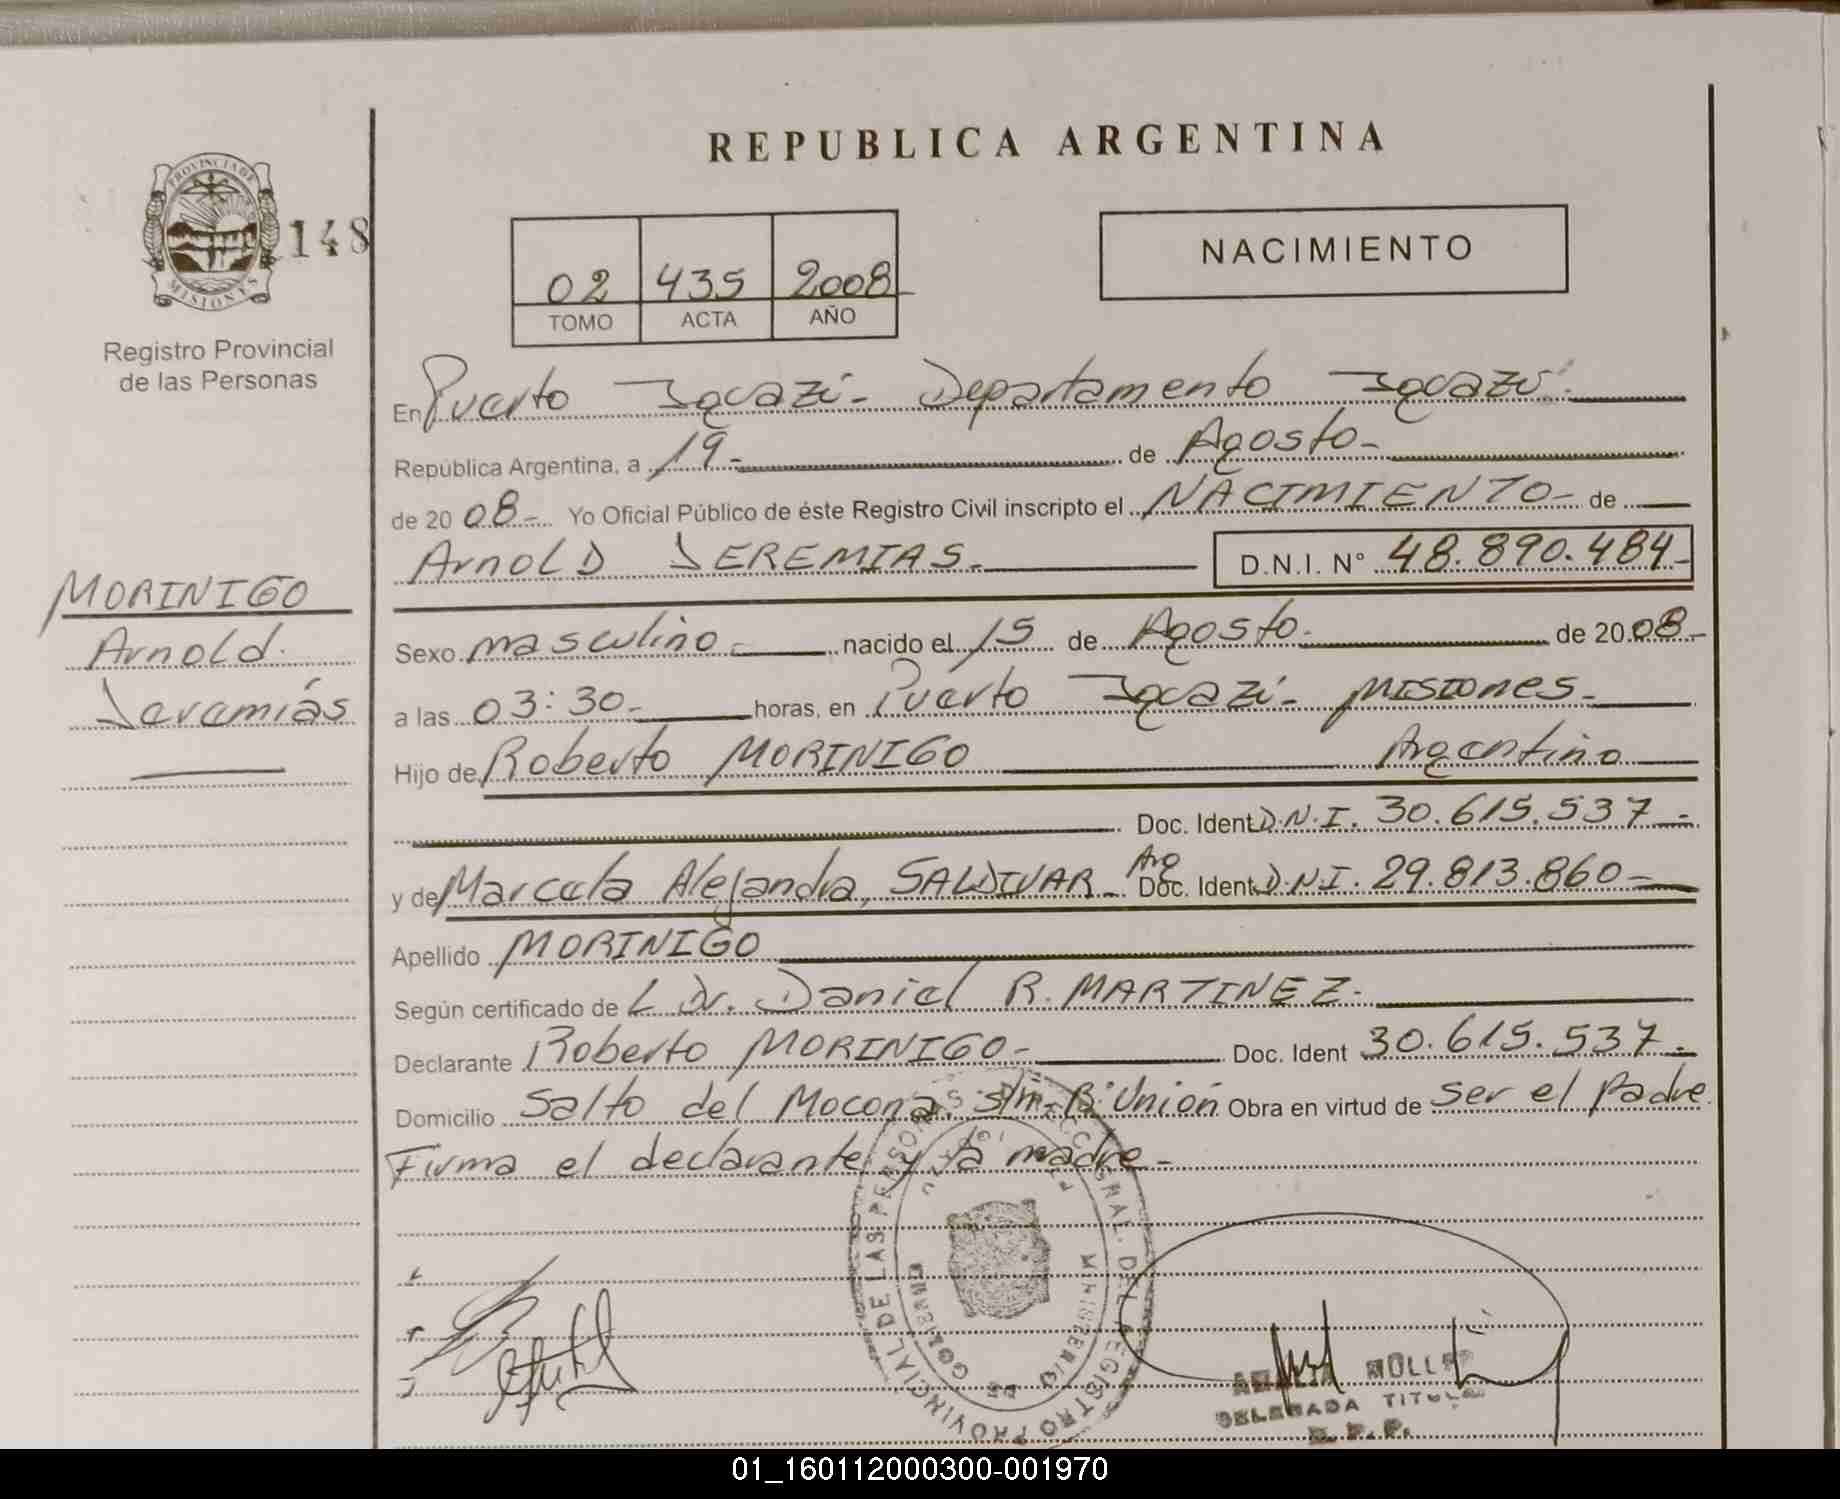 REPUBLICA ARGENTINA
PROVINCIA DE
MISIONES
148
Registro Provincial
de las Personas
02 435 2008
TOMO ACTA AÑO
NACIMIENTO
En Puerto Iguazú - Departamento Iguazú.
República Argentina, a 19 - de Agosto -
de 2008 - Yo Oficial Público de éste Registro Civil inscripto el NACIMIENTO - de
Arnold JEREMIAS. D.N.I. N° 48.890.484 -
MORINIGO
Arnold.
Jeremías
Sexo masculino - nacido el 15 de Agosto. de 2008 -
a las 03:30 - horas, en Puerto Iguazú - MISIONES -
Hijo de Roberto MORINIGO Argentino
Doc. Ident. D.N.I. 30.615.537 -
y de Marcela Alejandra, SALDIVAR - Arg Doc. Ident. D.N.I. 29.813.860 -
Apellido MORINIGO
Según certificado de L Dr. Daniel R. MARTINEZ -
Declarante Roberto MORINIGO - Doc. Ident 30.615.537 -
Domicilio Salto del Mocona, s/n - B° Unión Obra en virtud de ser el padre
Firma el declarante y la madre -
DEL REGISTRO PROVINCIAL DE LAS PERSONAS
MINISTERIO DE GOBIERNO
DELEGADA TITULAR
R. P. P.
01_160112000300-001970